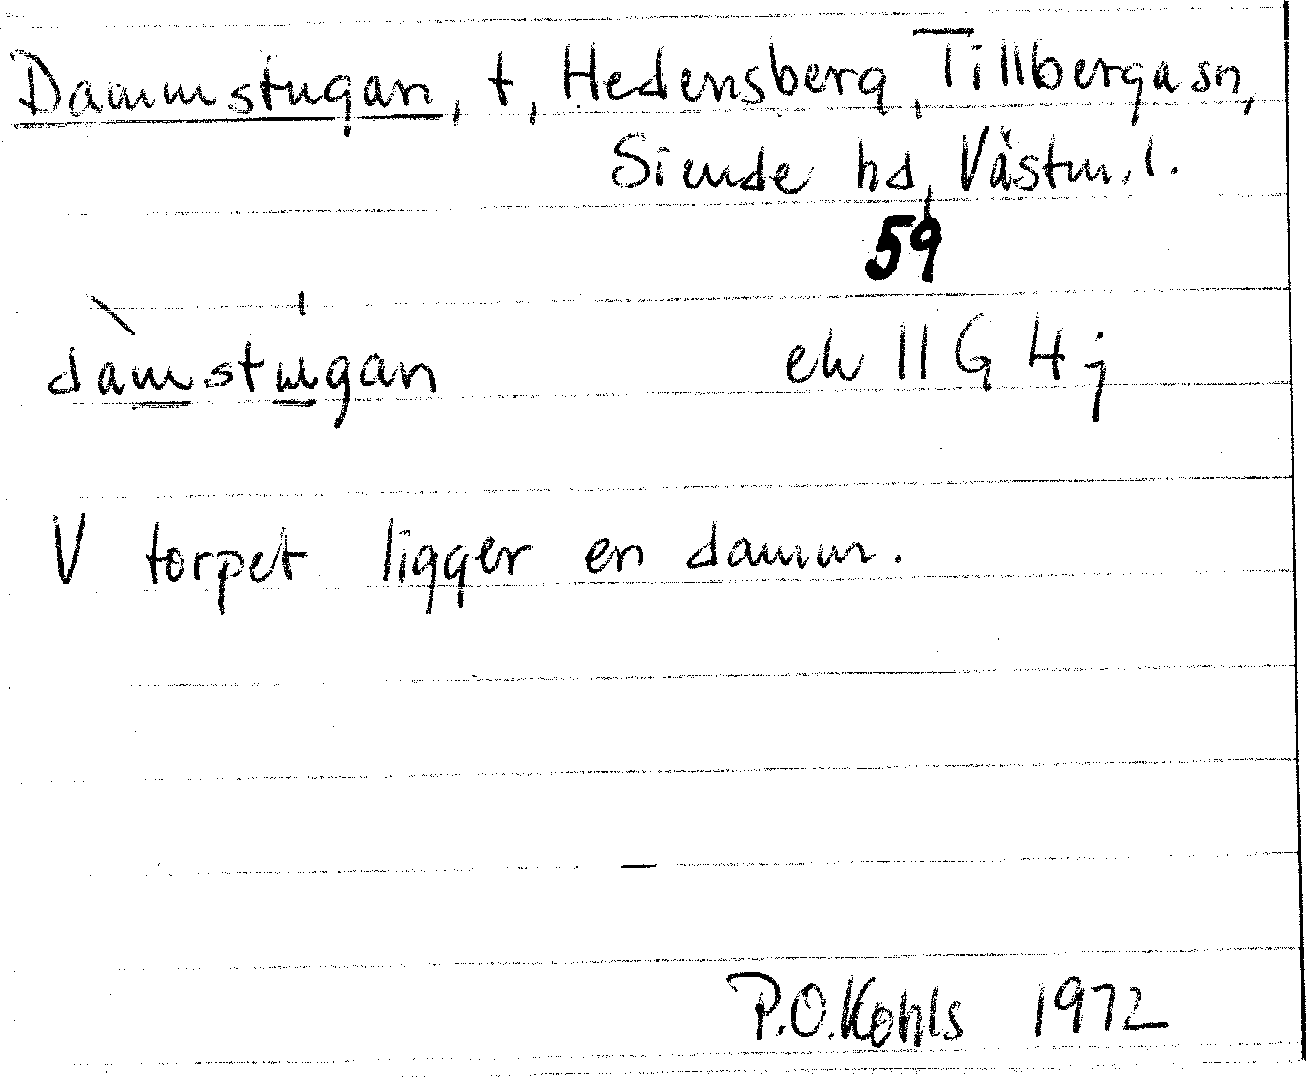 Dammstugan, t, Hedensberg, Tillberga sn,
Siende hd, Västm. l.
59
dàmstugan ek 11 G 4 j
V torpet ligger en damm.
P.O. Kohls 1972